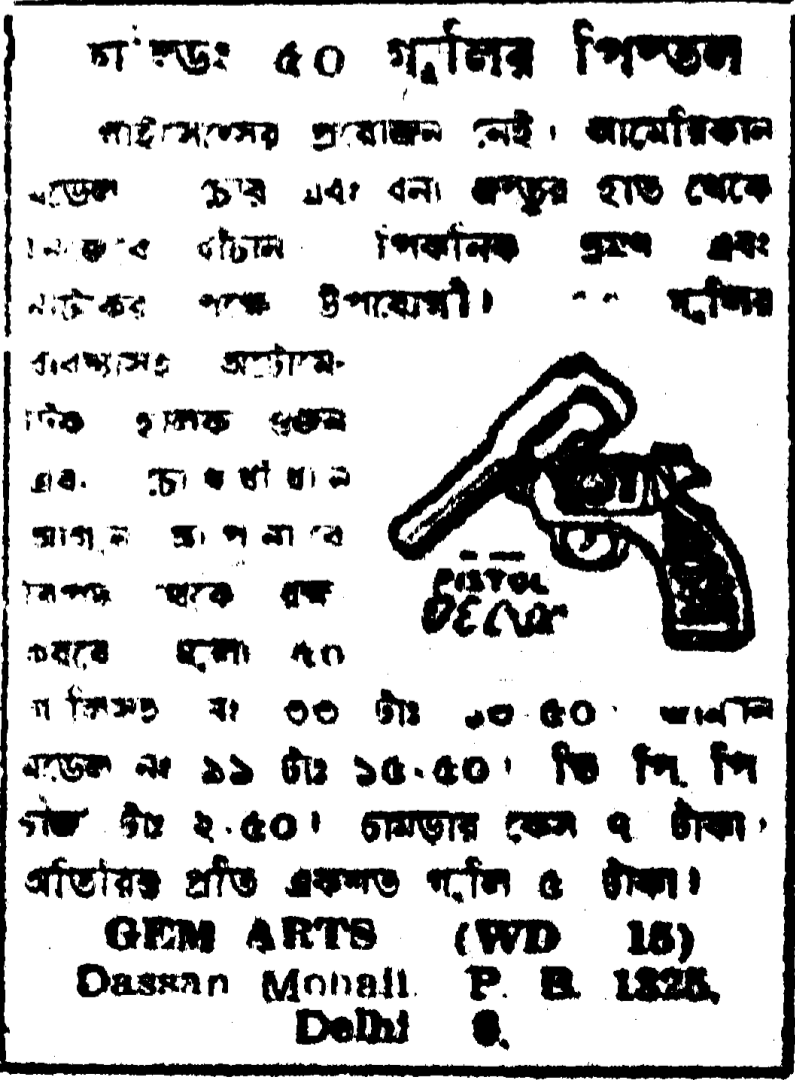 ৫০ গুলির পিস্তল
লাইসেন্সের প্রয়োজন নেই। আমেরিকান
মডেল চোর এবং বন্য জন্তুর হাত থেকে
নিজেকে বাঁচান পিকনিক ভ্রমণ এবং
নাটকের পক্ষে উপযোগী। গুলির
ব্যবস্থাসহ অটোমে-
টিক ওজন
এবং চোখধাঁধান
আগুন আপনাকে
বিপদ থেকে রক্ষা
করবে মূল্য ৫০
নং ৩৩ টাঃ ৫০। জার্মান
মডেল নং ১১ টাঃ ১৫.৫০। ভি পি. পি
চার্জ টাঃ ২.৫০। চামড়ার কেস ৭ টাকা।
অতিরিক্ত প্রতি একশত গুলি ৫ টাকা।
PISTOL
GEM ARTS (WD 15)
Dassan Mohall. P. B. 1325,
Delhi 6.